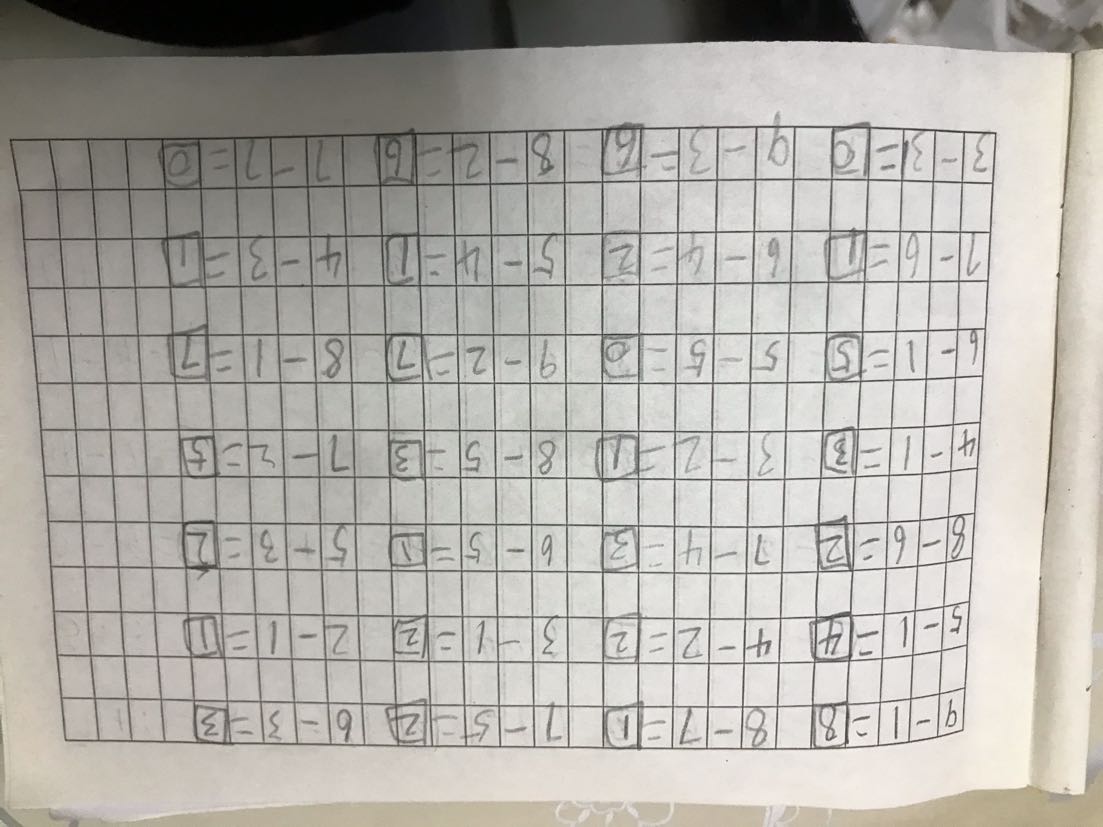 9-1=8 8-7=1 7-5=2 6-3=3
5-1=4 4-2=2 3-1=2 2-1=1
8-6=2 7-4=3 6-5=1 5-3=2
4-1=3 3-2=1 8-5=3 7-2=5
6-1=5 5-5=0 9-2=7 8-1=7
7-6=1 6-4=2 5-4=1 4-3=1
3-3=0 9-3=6 8-2=6 7-7=0